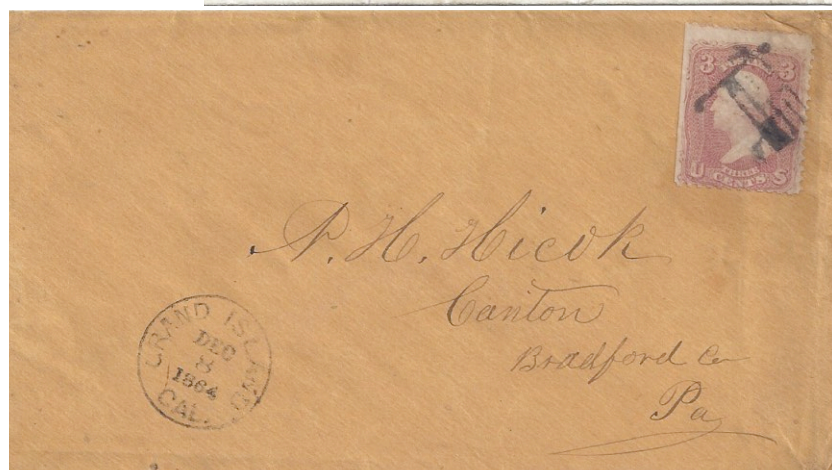 3 3
U CENTS S
P. H. Hicok
Canton
Bradford Co
Pa
GRAND ISLAND
DEC
8
1864
CAL.